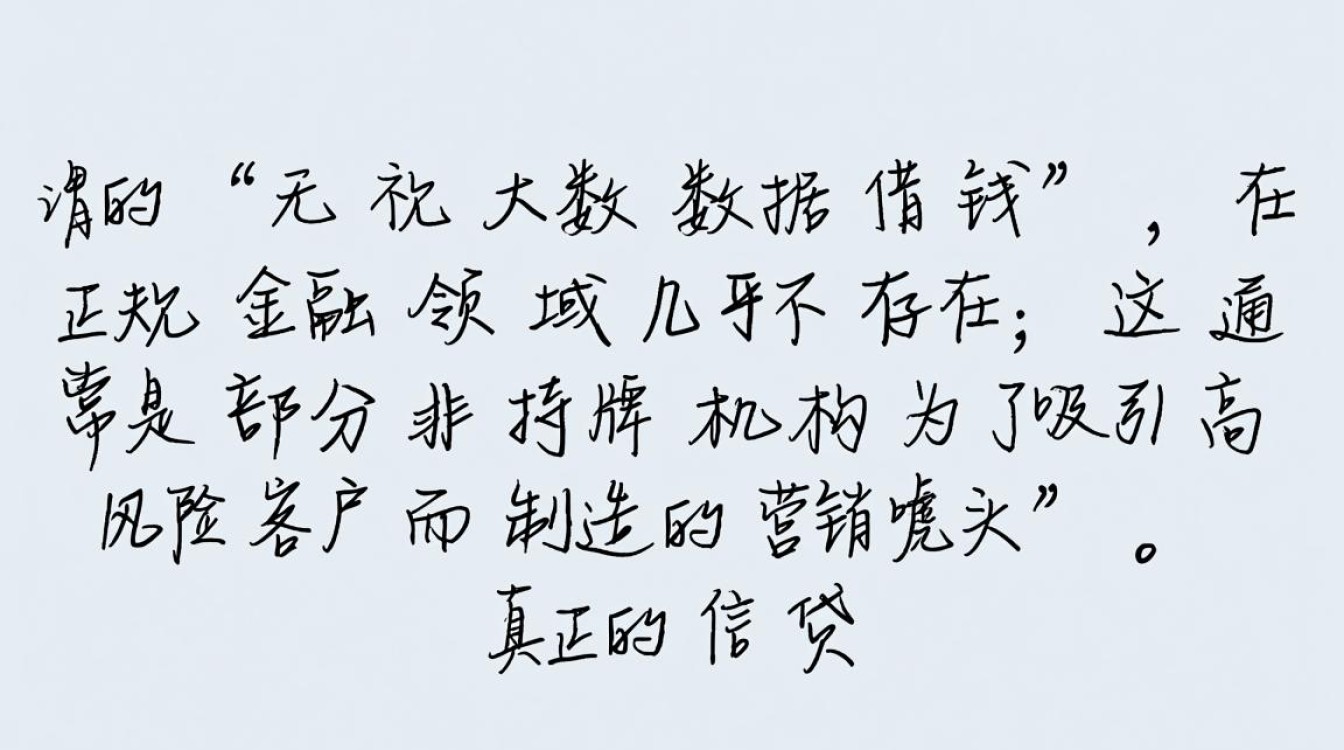 谓的“无视大数数据借钱”，在
正规金融领域几乎不存在；这通
常是部分非持牌机构为了吸引高
风险客户而制造的营销唬头”。
真正的信贷